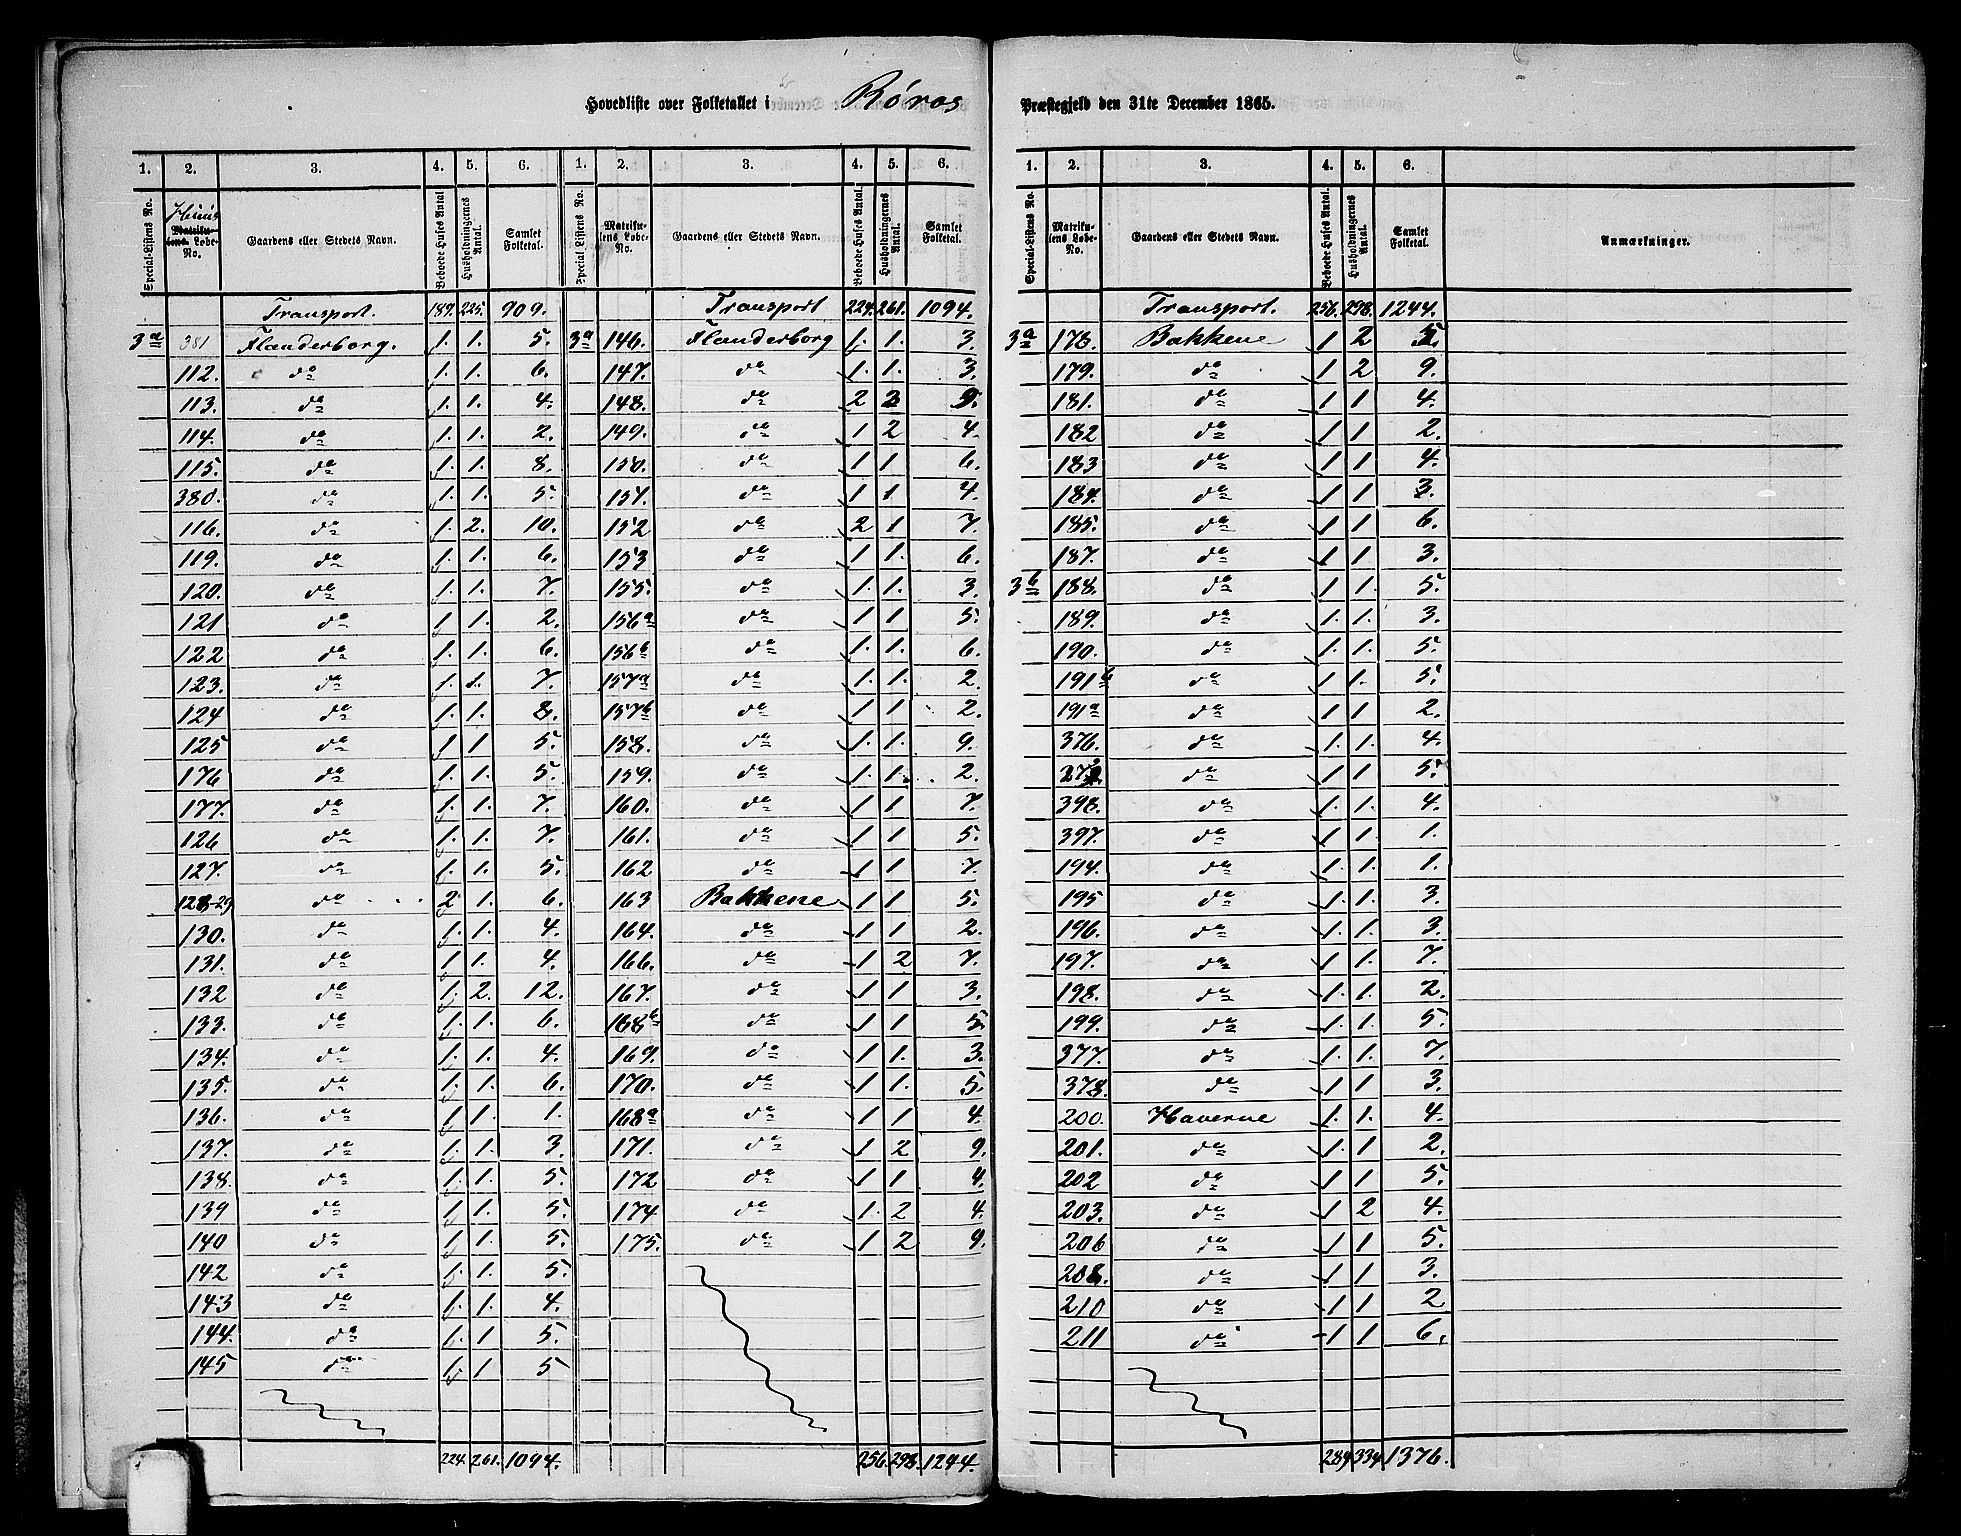 Hovedliste over Folketallet i Røros Præstegjeld den 31te December 1865.
1. 2. 3. 4. 5. 6. 1. 2. 3. 4. 5. 6.
Special-Listens No. Huus Matrikulens Løbe-No. Gaardens eller Stedets Navn. Beboede Huses Antal Husholdningernes Antal. Samlet Folketal. Special Listens No. Matrikulens Løbe-No. Gaardens eller Stedets Navn. Beboede Huses Antal. Husholdningernes Antal. Samlet Folketal.
Transport. 189. 225. 909.
3a 381 Flanderborg. 1. 1. 5.
112. da 1. 1. 6.
113. da 1. 1. 4.
114. da 1. 1. 2.
115. da 1. 1. 8.
380. da 1. 1. 5.
116. da 1. 2. 10.
119. da 1. 1. 6.
120. da 1. 1. 7.
121 da 1. 1 2.
122 da 1. 1. 6.
123. da 1. 1. 7.
124 da 1. 1. 8.
125 da 1 1 5.
176 da 1. 1. 5.
177. da 1. 1. 7.
126 da 1. 1. 7.
127. da 1. 1. 5.
128-29 da 2. 1. 6.
130. da 1. 1. 4.
131. da 1 1. 4.
132 da 1. 2. 12.
133. da 1. 1. 6.
134. da 1. 1. 4.
135. da 1. 1. 6.
136. da 1 1. 1.
137. da 1. 1. 3.
138. da 1. 1. 5.
139 da 1. 1. 5.
140 da 1 1. 5.
142 da 1. 1. 5.
143 da 1. 1. 4.
144. da 1. 1 5.
145 da 1. 1 5
224. 261. 1094.
Transport 224. 261. 1094.
3a 146. Flanderborg 1. 1. 3.
147. da 1. 1. 3.
148. da 2
149. da 1 2 4.
150. da 1 1 6.
151. da 1 1 4.
152 da 2 1 7.
153 da 1 1. 6.
155. da 1. 1. 3.
156a da 1 1 5.
156b da 1. 1. 6.
157a da 1. 1. 2.
157b da 1 1. 2.
158. da 1. 1. 9.
159. da 1. 1. 2.
160. da 1 1 7.
161. da 1 1 5.
162 da 1 1 7.
163 Bakkene 1 1 5.
164. da 1 1 2.
166. da 1 2 7.
167. da 1 1 3.
168b da 1 1 5.
169. da 1 1. 3.
170. da 1 1. 5.
168a da 1 1 4.
171. da 1 2 9.
172 da 1 1 4.
174 da 1. 2 4.
175. da 1 2 9.
256. 298. 1244.
1. 2. 3. 4. 5. 6.
Special-Listens No. Matrikulens Løbe-No. Gaardens eller Stedets Navn. Beboede Huses Antal. Husholdningernes Antal. Samlet Folketal. Anmærkninger.
Transport. 256. 298. 1244.
3a 178. Bakkene 1 2 5.
179. da 1 2 9.
181. da 1 1 4.
182 da 1 1 2.
183 da 1 1 4.
184. da 1 1 3.
185. da 1 1 6.
187. da 1 1 3.
3b 188. da 1 1 5.
189. da 1. 1. 3.
190. da 1. 1. 5.
191b da 1 1. 5.
191a da 1 1 2.
376. da 1. 1. 4.
da 1 1 5.
398. da 1. 1. 4.
397. da 1. 1 1.
194. da 1. 1. 1.
195 da 1 1. 3.
196. da 1. 1. 3.
197. da 1 1. 7.
198. da 1. 1. 2.
199. da 1. 1. 5.
377. da 1. 1. 7.
378. da 1 1 3.
200. Haverne 1. 1. 4.
201. da 1. 1 2.
202 da 1 1 5.
203. da 1 2 4.
206 da 1 1 5.
208. da 1 1 3.
210 da 1 1 2
211 da 1 1 6.
289 334 1376.